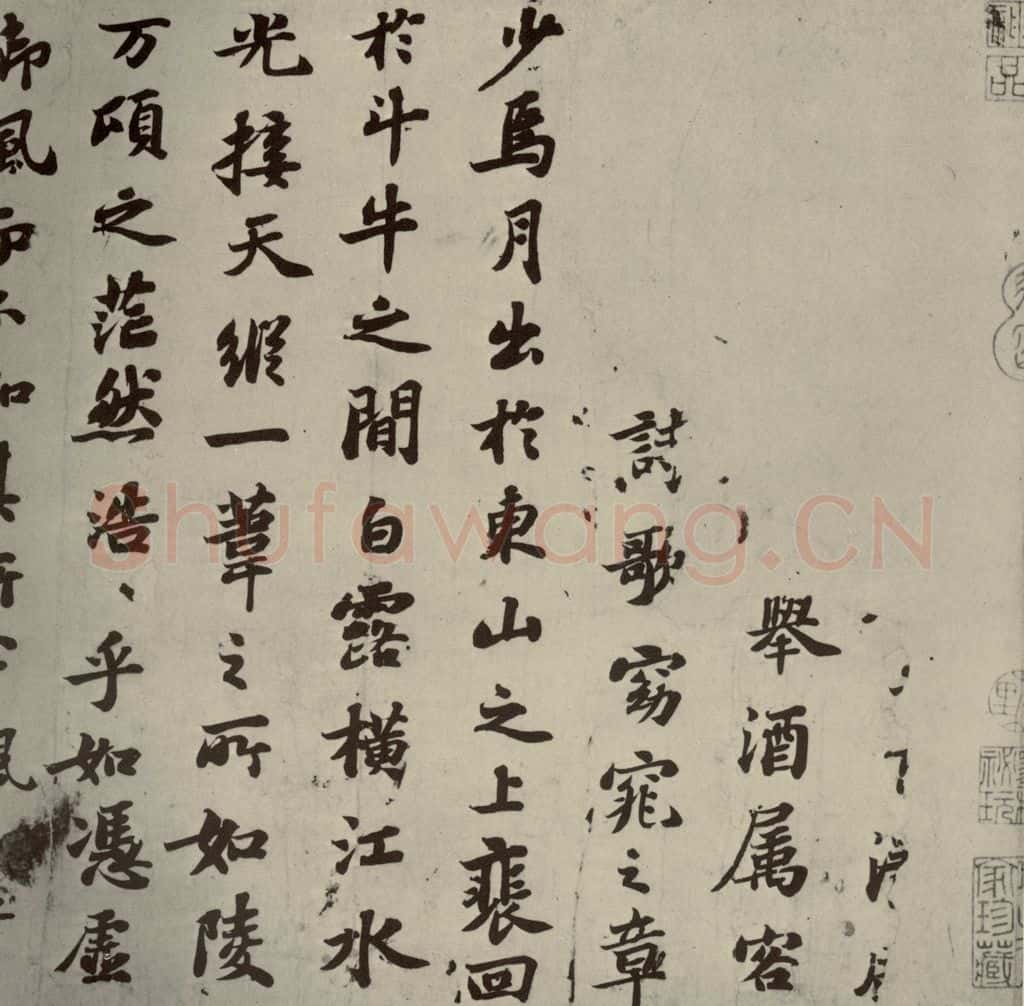 神品
秘玩
家珍藏
舉酒属客
歌窈窕之章
少焉月出於東山之上裴回
於斗牛之間白露橫江水
光接天縱一葦之所如陵
万頃之茫然浩、乎如憑虛
御風而不知其所止
Shufawang.CN